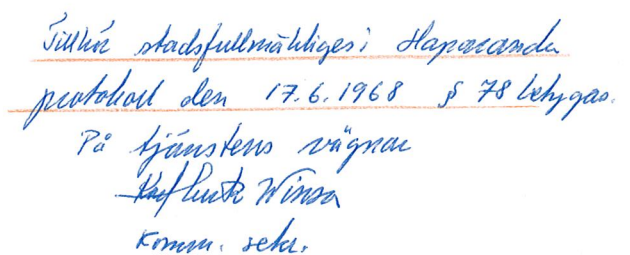 Tillhör stadsfullmäktiges i Haparanda
protokoll den 17.6.1968 § 78 betygas.
På tjänstens vägnar
Winsa
Komm. sekr.